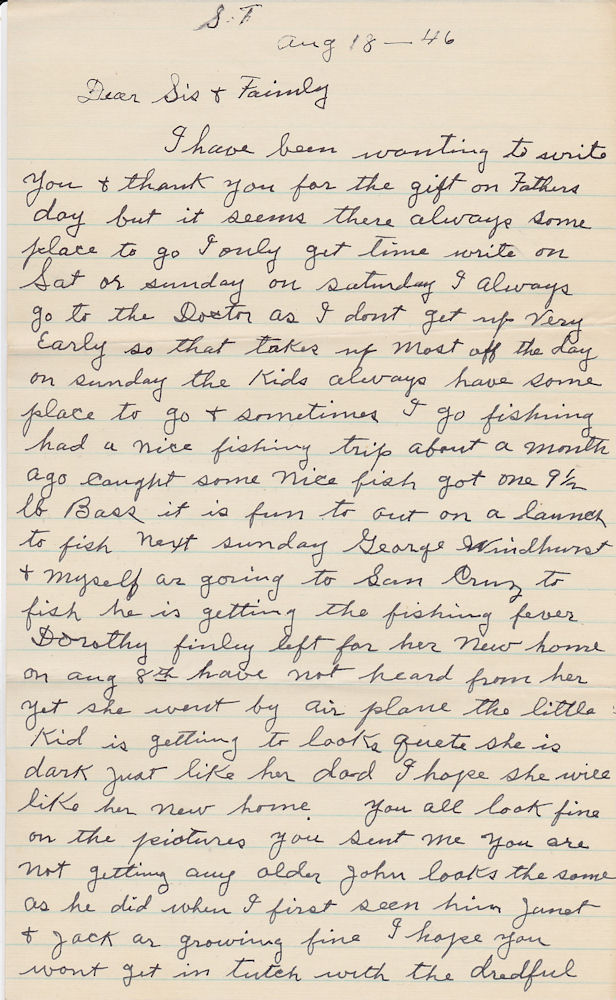 S.F
Aug 18 - 46
Dear Sis & Faimly
I have been wanting to write
You & thank you for the gift on Fathers
day but it seems there always some
place to go I only get time write on
Sat or sunday on saturday I always
go to the Doctor as I dont get up Very
Early so that takes up Most off the day
on sunday the Kids always have some
place to go & sometimes I go fishing
had a nice fishing trip about a month
ago caught some Nice fish got one 9 1/2
lb Bass it is fun to out on a launch
to fish Next sunday George Windhurst
& Myself ar going to San Cruz to
fish he is getting the fishing fever
Dorothy finley left for her New home
on aug 8th have not heard from her
yet she went by air plane the little
Kid is getting to looks quete she is
dark just like her dad I hope she will
like her new home You all look fine
on the pictures you sent me you are
Not getting any older John looks the same
as he did when I first seen him Janet
& Jack ar growing fine I hope you
wont get in tutch with the dredful